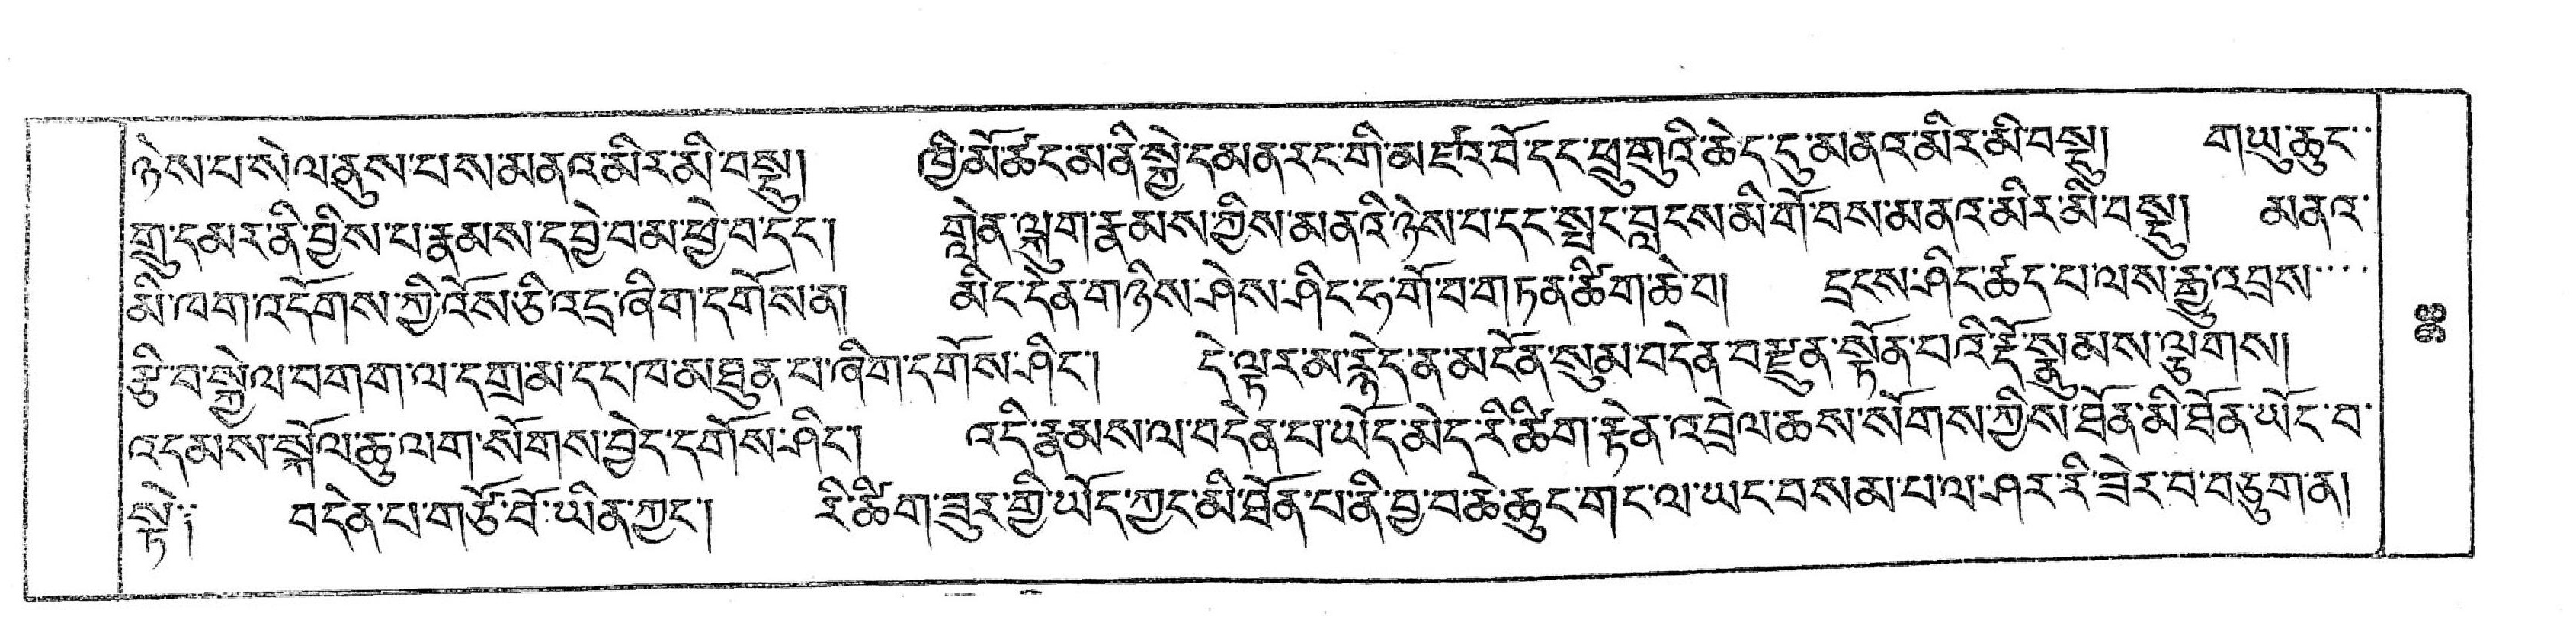 ཉེས་པ་སེལ་ནུས་པས་མནའ་མིར་མི་བསྡུ།    ཁྱི་མོ་ཚང་མ་ནི་སྐྱེ་དམན་རང་གི་མཛའ་བོ་དང་ཕྲུ་གུའི་ཆེད་དུ་མནའ་མིར་མི་བསྡུ།    གཡུ་ཆུང་
གྲུ་དམར་ནི་བྱིས་པ་རྣམས་དབྱེ་བ་མ་ཕྱེ་བ་དང་།    གླེན་ལྐུག་རྣམས་ཀྱིས་མནའི་ཉེས་པ་དང་སྤང་བླངས་མི་གོ་བས་མནའ་མིར་མི་བསྡུ།    མནའ་
མི་ཁག་འདོགས་ཀྱི་འོས་ཅི་འདྲ་ཞིག་དགོས་ན།    མིང་དེན་གཉིས་ཤེས་ཤིང་ཧ་གོ་བ་གཏན་ཚིག་ཆེ་བ།    དྲངས་ཤིང་ཚད་པ་ལས་རྒྱུ་འབྲས་
རྩི་བ་སྐྱེལ་བགག་ལ་དགྲ་མ་དང་ཁ་མཐུན་པ་ཞིག་དགོས་ཤིང་།    དེ་ལྟར་མ་རྙེད་ན་མངོན་སུམ་བདེན་བརྫུན་སྟོན་པའི་རྡོ་སྣུམས་ལྕུགས།
འདམས་སྐོལ་ཆུ་ལག་སོགས་བྱེད་དགོས་ཤིང་།    འདི་རྣམས་ལ་བདེན་པ་ཡོད་མེད་རི་ཚིག་རྟེན་འབྲེལ་ཆས་སོགས་ཀྱིས་ཐོན་མི་ཐོན་ཡོང་བ་
སྟེ།    བདེན་པ་གཙོ་བོ་ཡིན་ཀྱང་།    རི་ཚིག་ཟུར་གྱི་ཡོད་ཀྱང་མི་ཐོན་པ་ནི་བྱ་བ་ཆེ་ཆུང་གང་ལ་ཡང་བསམ་པ་ལ་ཤར་རི་ཟེར་བ་བཅུག་ན།